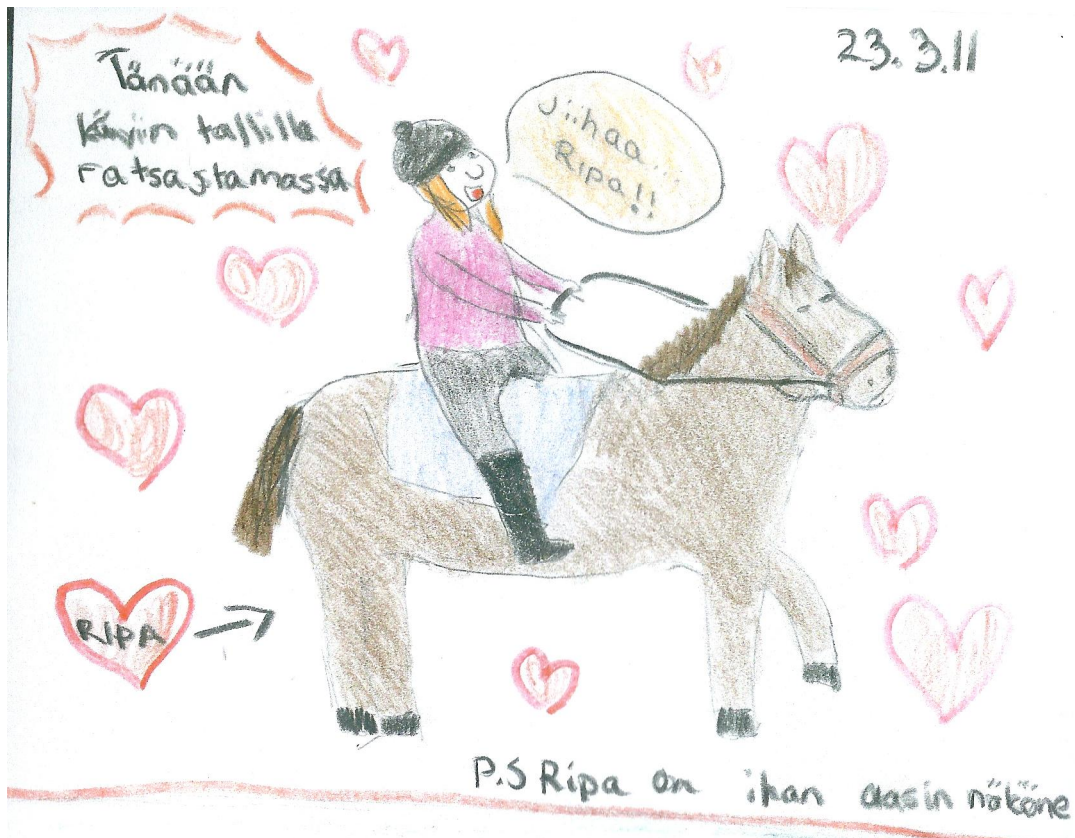 Tänään
kävin tallilla
ratsastamassa
23.3.11
Jiihaa
Ripa!!
RIPA
P.S Ripa on ihan aasin nököne